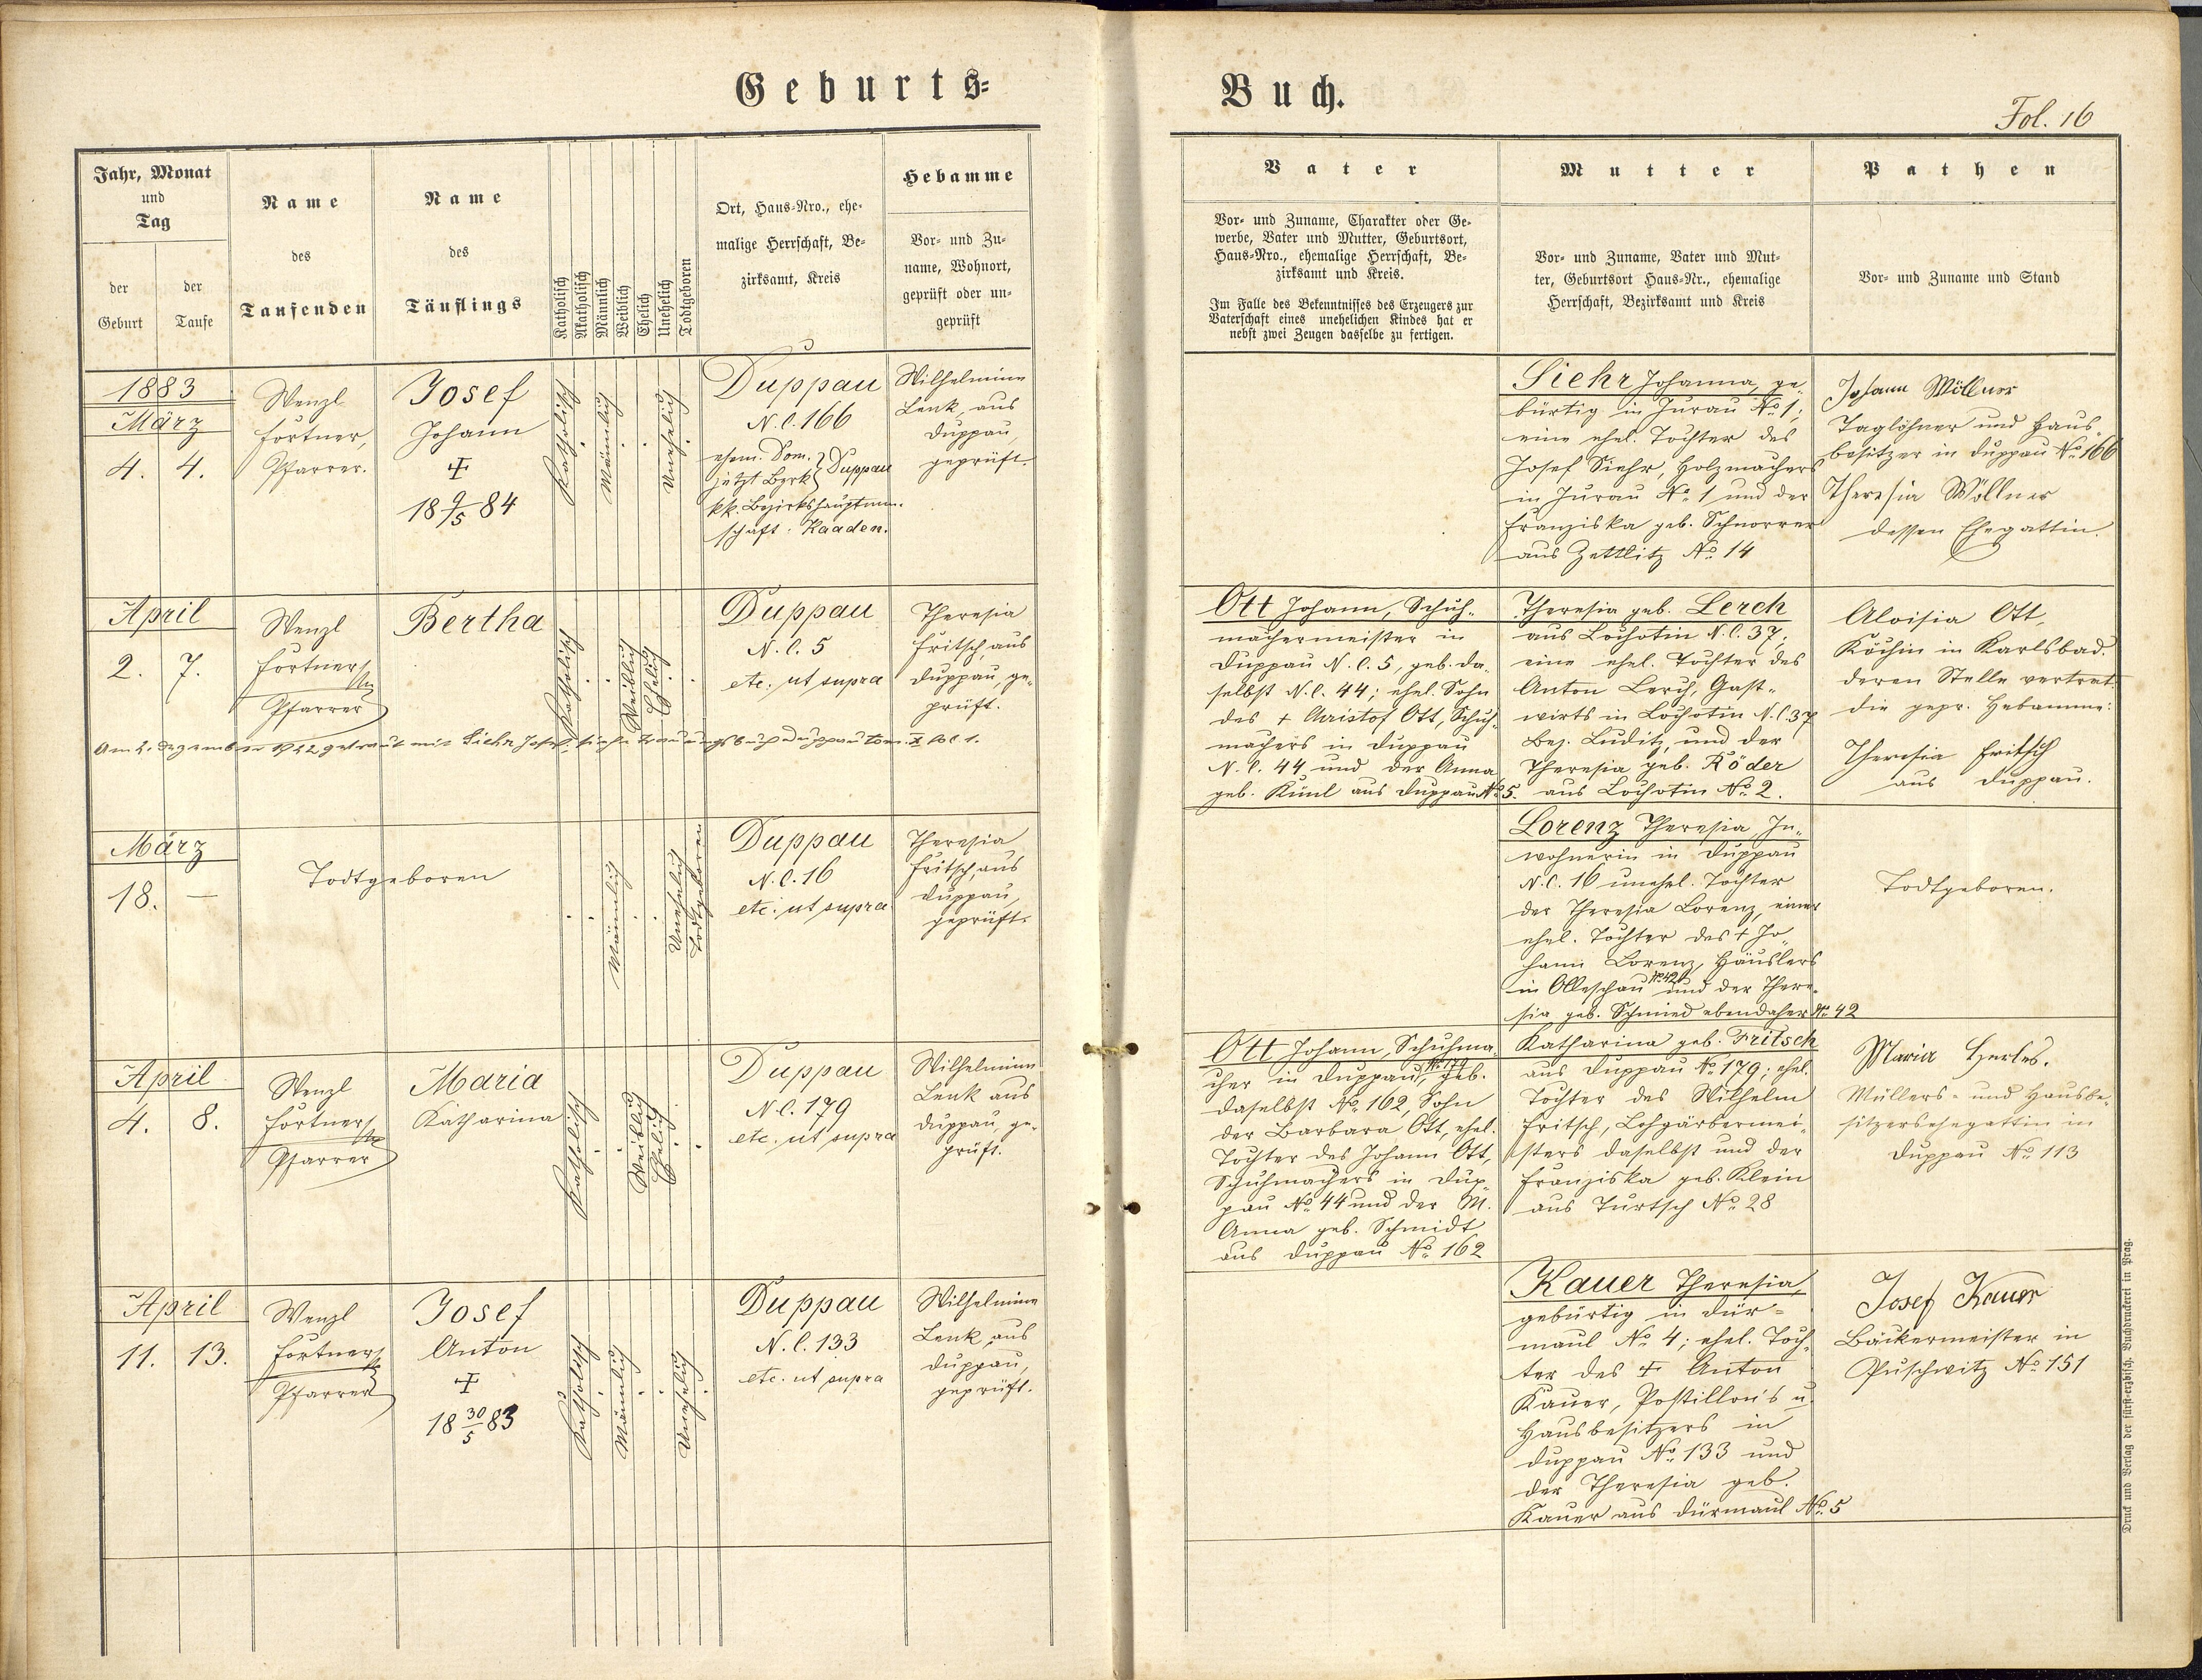 Geburts-
Buch.
Fol. 16
Jahr, Monat
und
Tag
der
Geburt
der
Taufe
Name
des
Taufenden
Name
des
Täuflings
Katholisch
Akatholisch
Männlich
Weiblich
Ehelich
Unehelich
Todtgeboren
Ort, Haus-Nro., ehe-
malige Herrschaft, Be-
zirksamt, Kreis
Hebamme
Vor- und Zu-
name, Wohnort,
geprüft oder un-
geprüft
Vater
Vor- und Zuname, Charakter oder Ge-
werbe, Vater und Mutter, Geburtsort,
Haus-Nro., ehemalige Herrschaft, Be-
zirksamt und Kreis.
Im Falle des Bekenntnisses des Erzeugers zur
Vaterschaft eines unehelichen Kindes hat er
nebst zwei Zeugen dasselbe zu fertigen.
Mutter
Vor- und Zuname, Vater und Mut-
ter, Geburtsort Haus-Nr., ehemalige
Herrschaft, Bezirksamt und Kreis
Pathen
Vor- und Zuname und Stand
1883
März
4. 4.
Wenzl
Fortner,
Pfarrer.
Josef
Johann
†
18 9/5 84
Katholisch
Männlich
Unehelich
Duppau
N.C. 166
ehem. Dom. } Duppau
jetzt Bzrk }
kk. Bezirkshauptmann-
schaft: Kaaden.
Wilhelmine
Lenk, aus
Duppau,
geprüft.
Siehr Johanna, ge-
bürtig in Jurau No 1;
eine ehel. Tochter des
Josef Siehr, Holzmachers
in Jurau No 1 und der
Franziska geb. Schnorrer
aus Zettlitz No 14
Johann Wöllner
Taglöhner und Haus-
besitzer in Duppau No 166
Theresia Wöllner
dessen Ehegattin.
April
2. 7.
Wenzl
Fortner
Pfarrer
Bertha
Katholisch
Weiblich
Ehelich
Duppau
N.C. 5
etc. ut supra
Theresia
Fritsch, aus
Duppau, ge-
prüft.
Am 2. Dezember 1922 getraut mit Siehr Josef, siehe Trauungsbuch Duppau tom. X fol 1.
Ott Johann, Schuh-
machermeister in
Duppau N.C. 5, geb. da-
selbst N.C. 44; ehel. Sohn
des † Christof Ott, Schuh-
machers in Duppau
N.C. 44 und der Anna
geb. Künl aus Duppau No 5.
Theresia geb. Lerch
aus Lochotin N.C. 37;
eine ehel. Tochter des
Anton Lerch, Gast-
wirts in Lochotin N.C. 37
Bez. Luditz, und der
Theresia geb. Röder
aus Lochotin No 2.
Aloisia Ott,
Köchin in Karlsbad.
deren Stelle vertrat
die gepr. Hebamme:
Theresia Fritsch
aus Duppau.
März
18. —
Todtgeboren
Männlich
Unehelich
Todtgeboren
Duppau
N.C. 16
etc. ut supra
Theresia
Fritsch, aus
Duppau,
geprüft.
Lorenz Theresia, In-
wohnerin in Duppau
N.C. 16 unehel. Tochter
der Theresia Lorenz, einer
ehel. Tochter des † Jo-
hann Lorenz, Häuslers
in Olleschau No 42 und der There-
sia geb. Schmied ebendaher No 42
Todtgeboren.
April
4. 8.
Wenzl
Fortner
Pfarrer
Maria
Katharina
Katholisch
Weiblich
Ehelich
Duppau
N.C. 179
etc. ut supra
Wilhelmine
Lenk aus
Duppau, ge-
prüft.
Ott Johann, Schuhma-
cher in Duppau No 179, geb.
daselbst No 162, Sohn
der Barbara Ott, ehel.
Tochter des Johann Ott,
Schuhmachers in Dup-
pau No 44 und der M.
Anna geb. Schmidt
aus Duppau No 162
Katharina geb. Fritsch
aus Duppau No 179; ehel.
Tochter des Wilhelm
Fritsch, Lohgärbermei-
sters daselbst und der
Franziska geb. Klein
aus Turtsch No 28
Maria Herles.
Müllers- und Hausbe-
sitzersehegattin in
Duppau No 113
April
11. 13.
Wenzl
Fortner
Pfarrer
Josef
Anton
†
18 30/5 83
Katholisch
Männlich
Unehelich
Duppau
N.C. 133
etc. ut supra
Wilhelmine
Lenk, aus
Duppau,
geprüft.
Kauer Theresia,
gebürtig in Dür-
maul No 4; ehel. Toch-
ter des † Anton
Kauer, Postillon's u.
Hausbesitzers in
Duppau No 133 und
der Theresia geb.
Kauer aus Dürmaul No 5
Josef Kauer
Bäckermeister in
Puschwitz No 151
Druck und Verlag der fürst-erzbisch. Buchdruckerei in Prag.